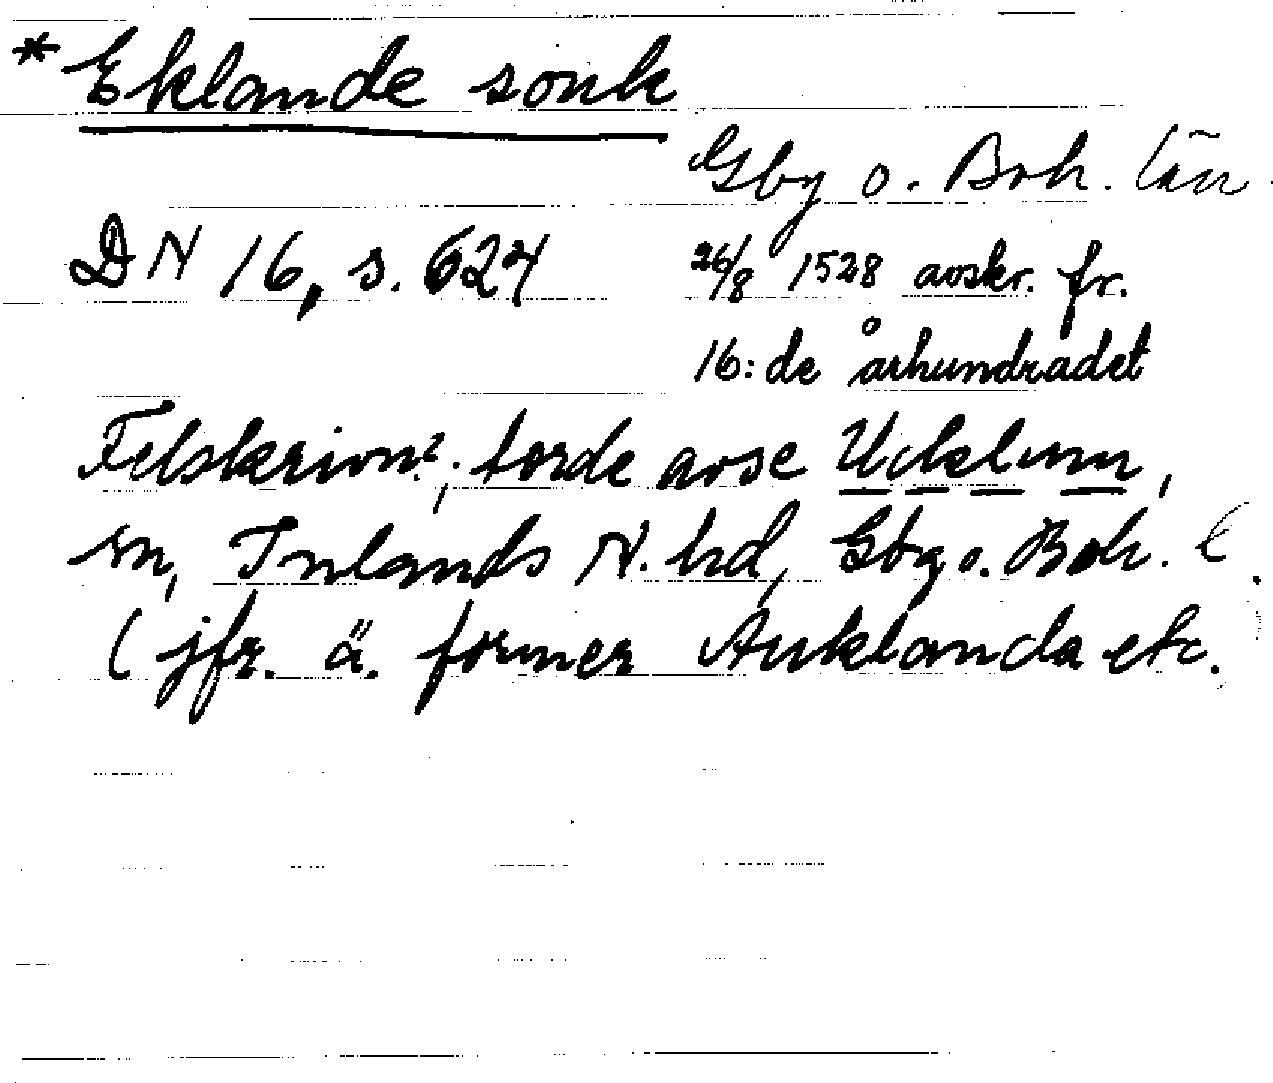 * Eklande sonk
Gby o. Boh. län
DN 16, s. 624
26/8 1528 avskr. fr.
16:de århundradet
Felskrivn?; torde avse Ucklum,
sn, Inlands N. hd, Gbg o. Boh. l.
( jfr. ä. former Auklanda etc.